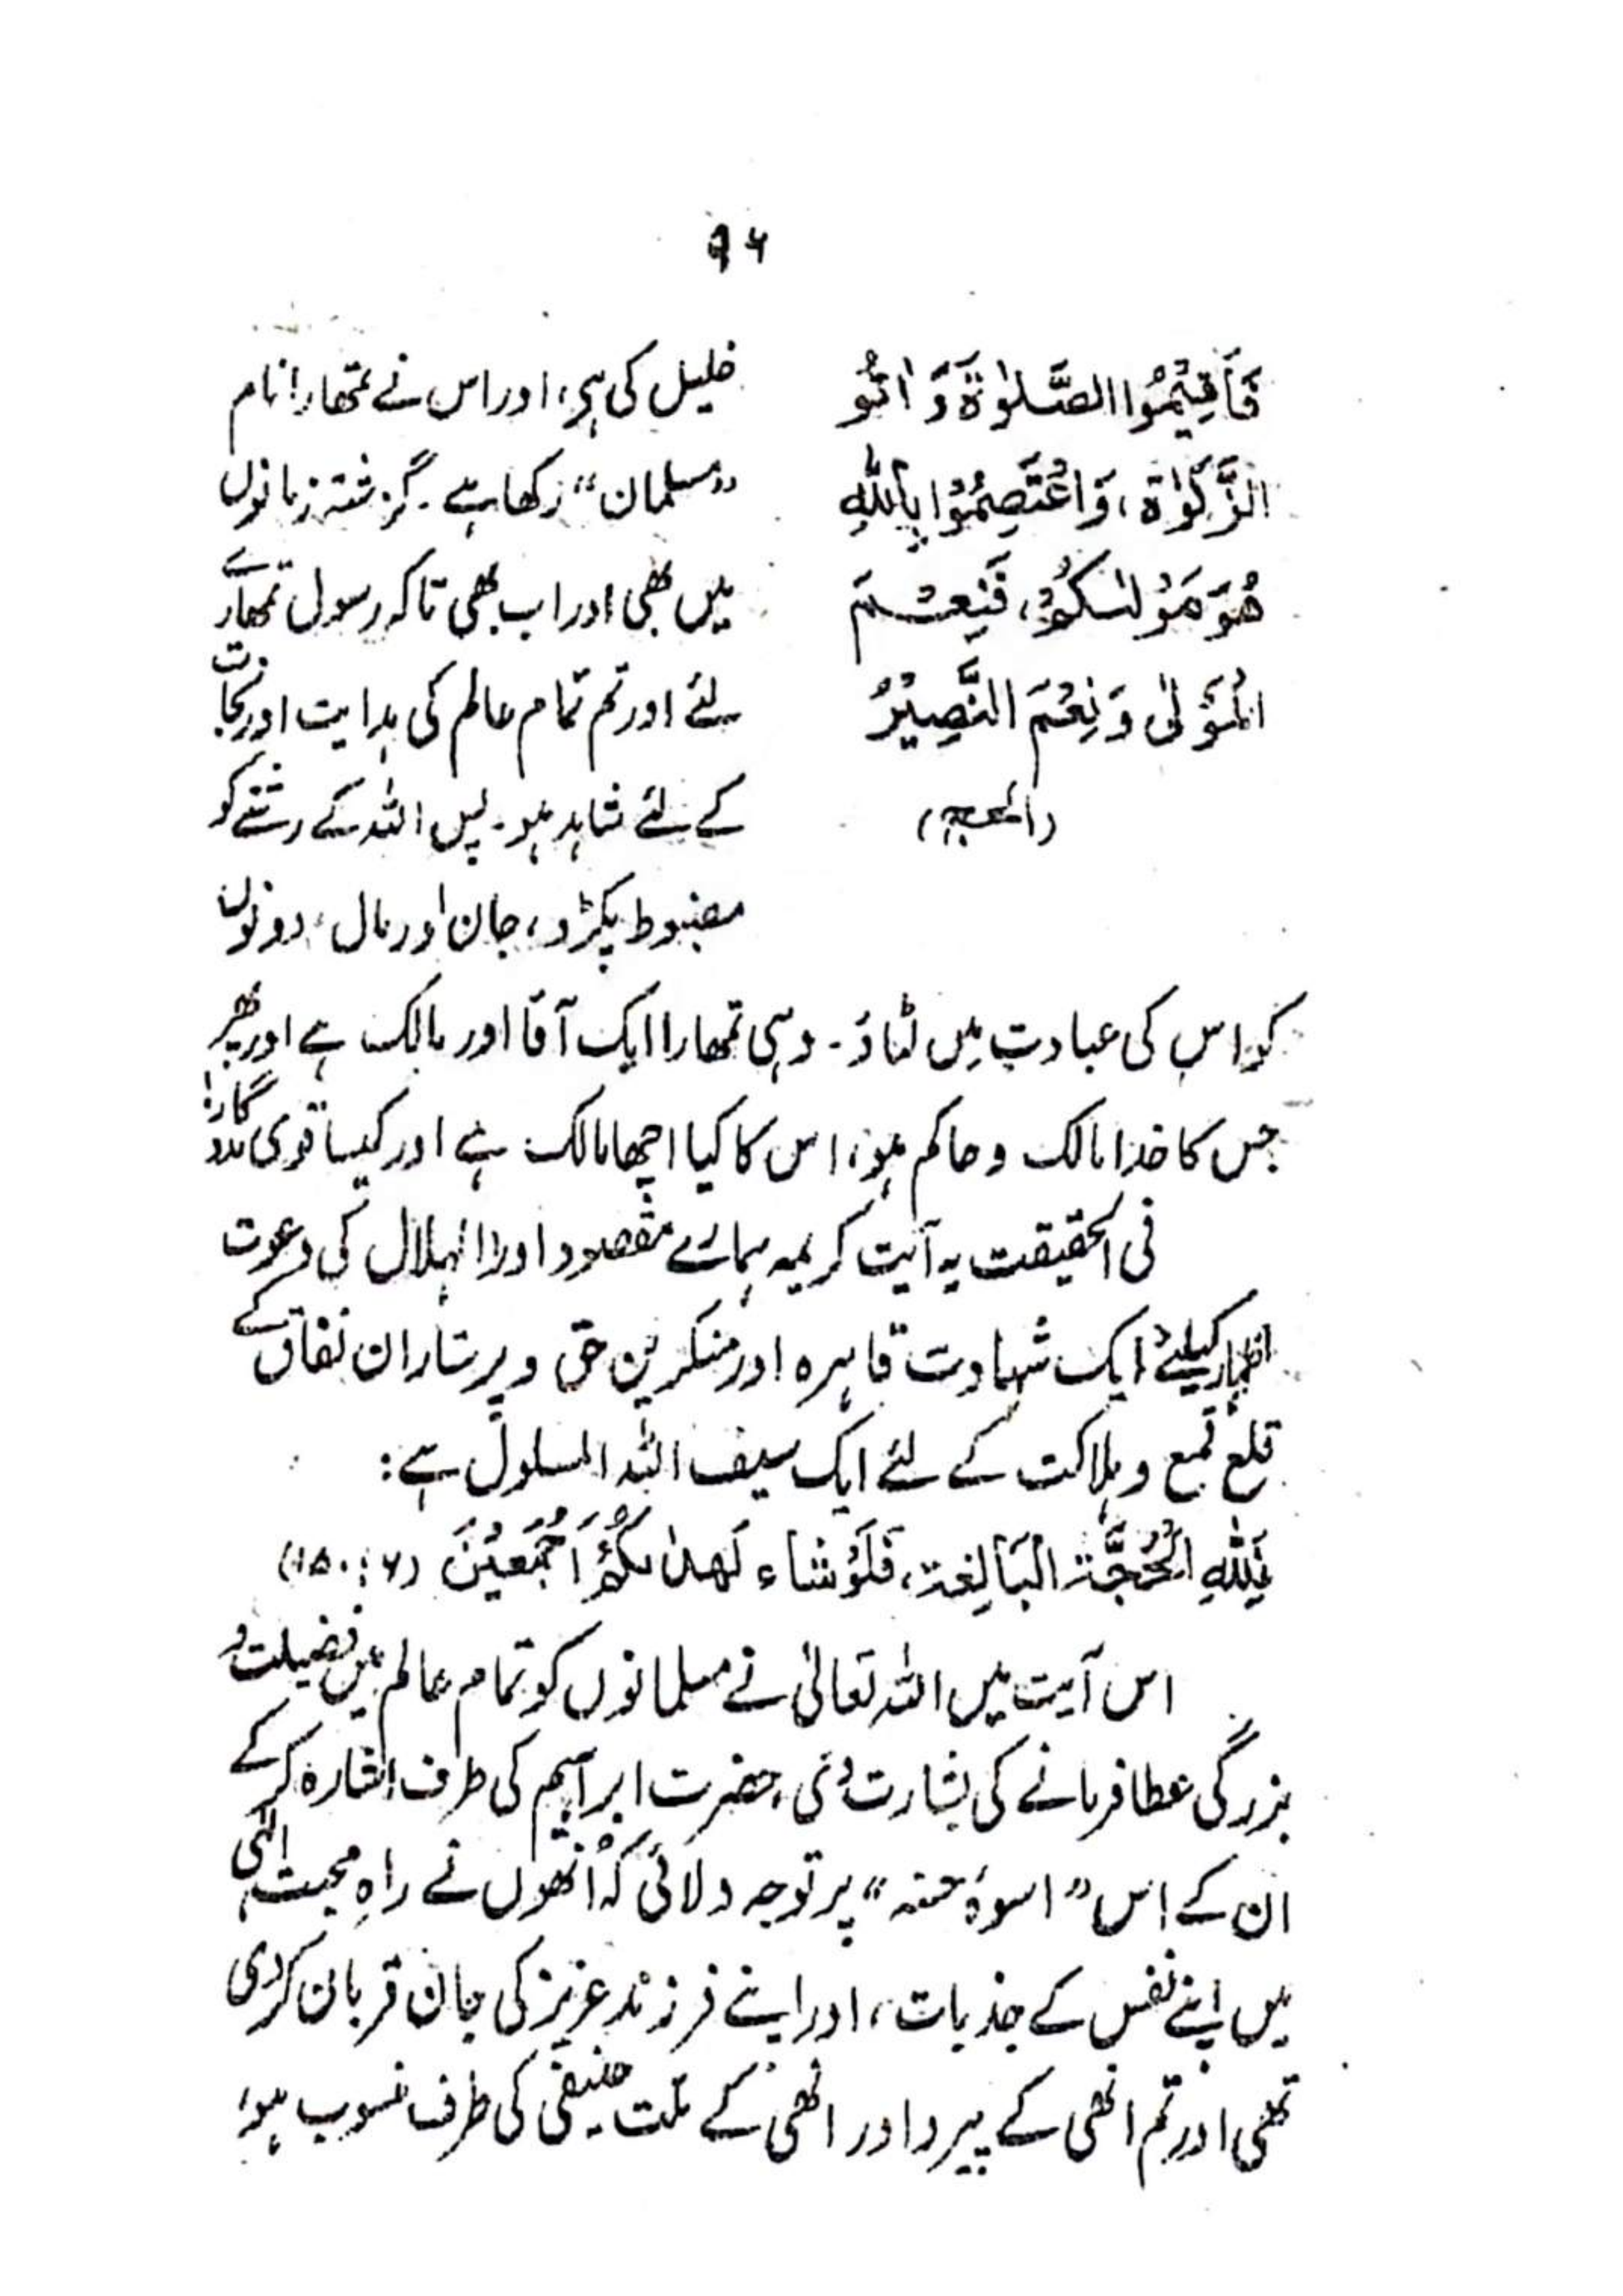 ۹۶
فَأَقِيْمُوا الصَّلوٰةَ وَ اٰتُو
الزَّكوٰة، وَاعْتَصِمُوْا بِاللّٰهِ
هُوَ مَوْلٰىكُمْ، فَنِعْمَ
الْمَوْلٰى وَنِعْمَ النَّصِيْرُ
(الحج)
خلیل کی ہی، اور اس نے تمھارا نام
"مسلمان" رکھا ہے۔ گزشتہ زمانوں
میں بھی اور اب بھی تاکہ رسول تمھارے
لئے اور تم تمام عالم کی ہدایت اور نجات
کے لئے شاہد ہو۔ پس اللہ کے رشتے کو
مضبوط پکڑو، جان اور مال، دونوں
کو اس کی عبادت میں لٹاؤ۔ وہی تمھارا ایک آقا اور مالک ہے اور پھر
جس کا خدا مالک و حاکم ہو، اس کا کیا اچھا مالک ہے اور کیسا قوی مددگار!
فی الحقیقت یہ آیت کریمہ ہمارے مقصود اور الہلال کی دعوت
اظہار کیلئے ایک شہادت قاہرہ اور منکرین حق و پرستاران نفاق کے
قلع قمع و ہلاکت کے لئے ایک سیف اللہ المسلول ہے:
لِلّٰهِ الْحُجَّة البَالِغة، فَلَوْشاء لَهدٰىكُمْ اَجْمَعِيْنَ (۶:۱۵۰)
اس آیت میں اللہ تعالیٰ نے مسلمانوں کو تمام عالم میں فضیلت و
بزرگی عطا فرمانے کی بشارت دی، حضرت ابراہیم کی طرف اشارہ کرکے
ان کے اس "اسوۂ حسنہ" پر توجہ دلائی کہ اُنھوں نے راہِ محبت الٰہی
میں اپنے نفس کے جذبات، اور اپنے فرزند عزیز کی جان قربان کردی
تھی اور تم انھی کے پیرو اور انھی کے ملت حنیفی کی طرف منسوب ہو،